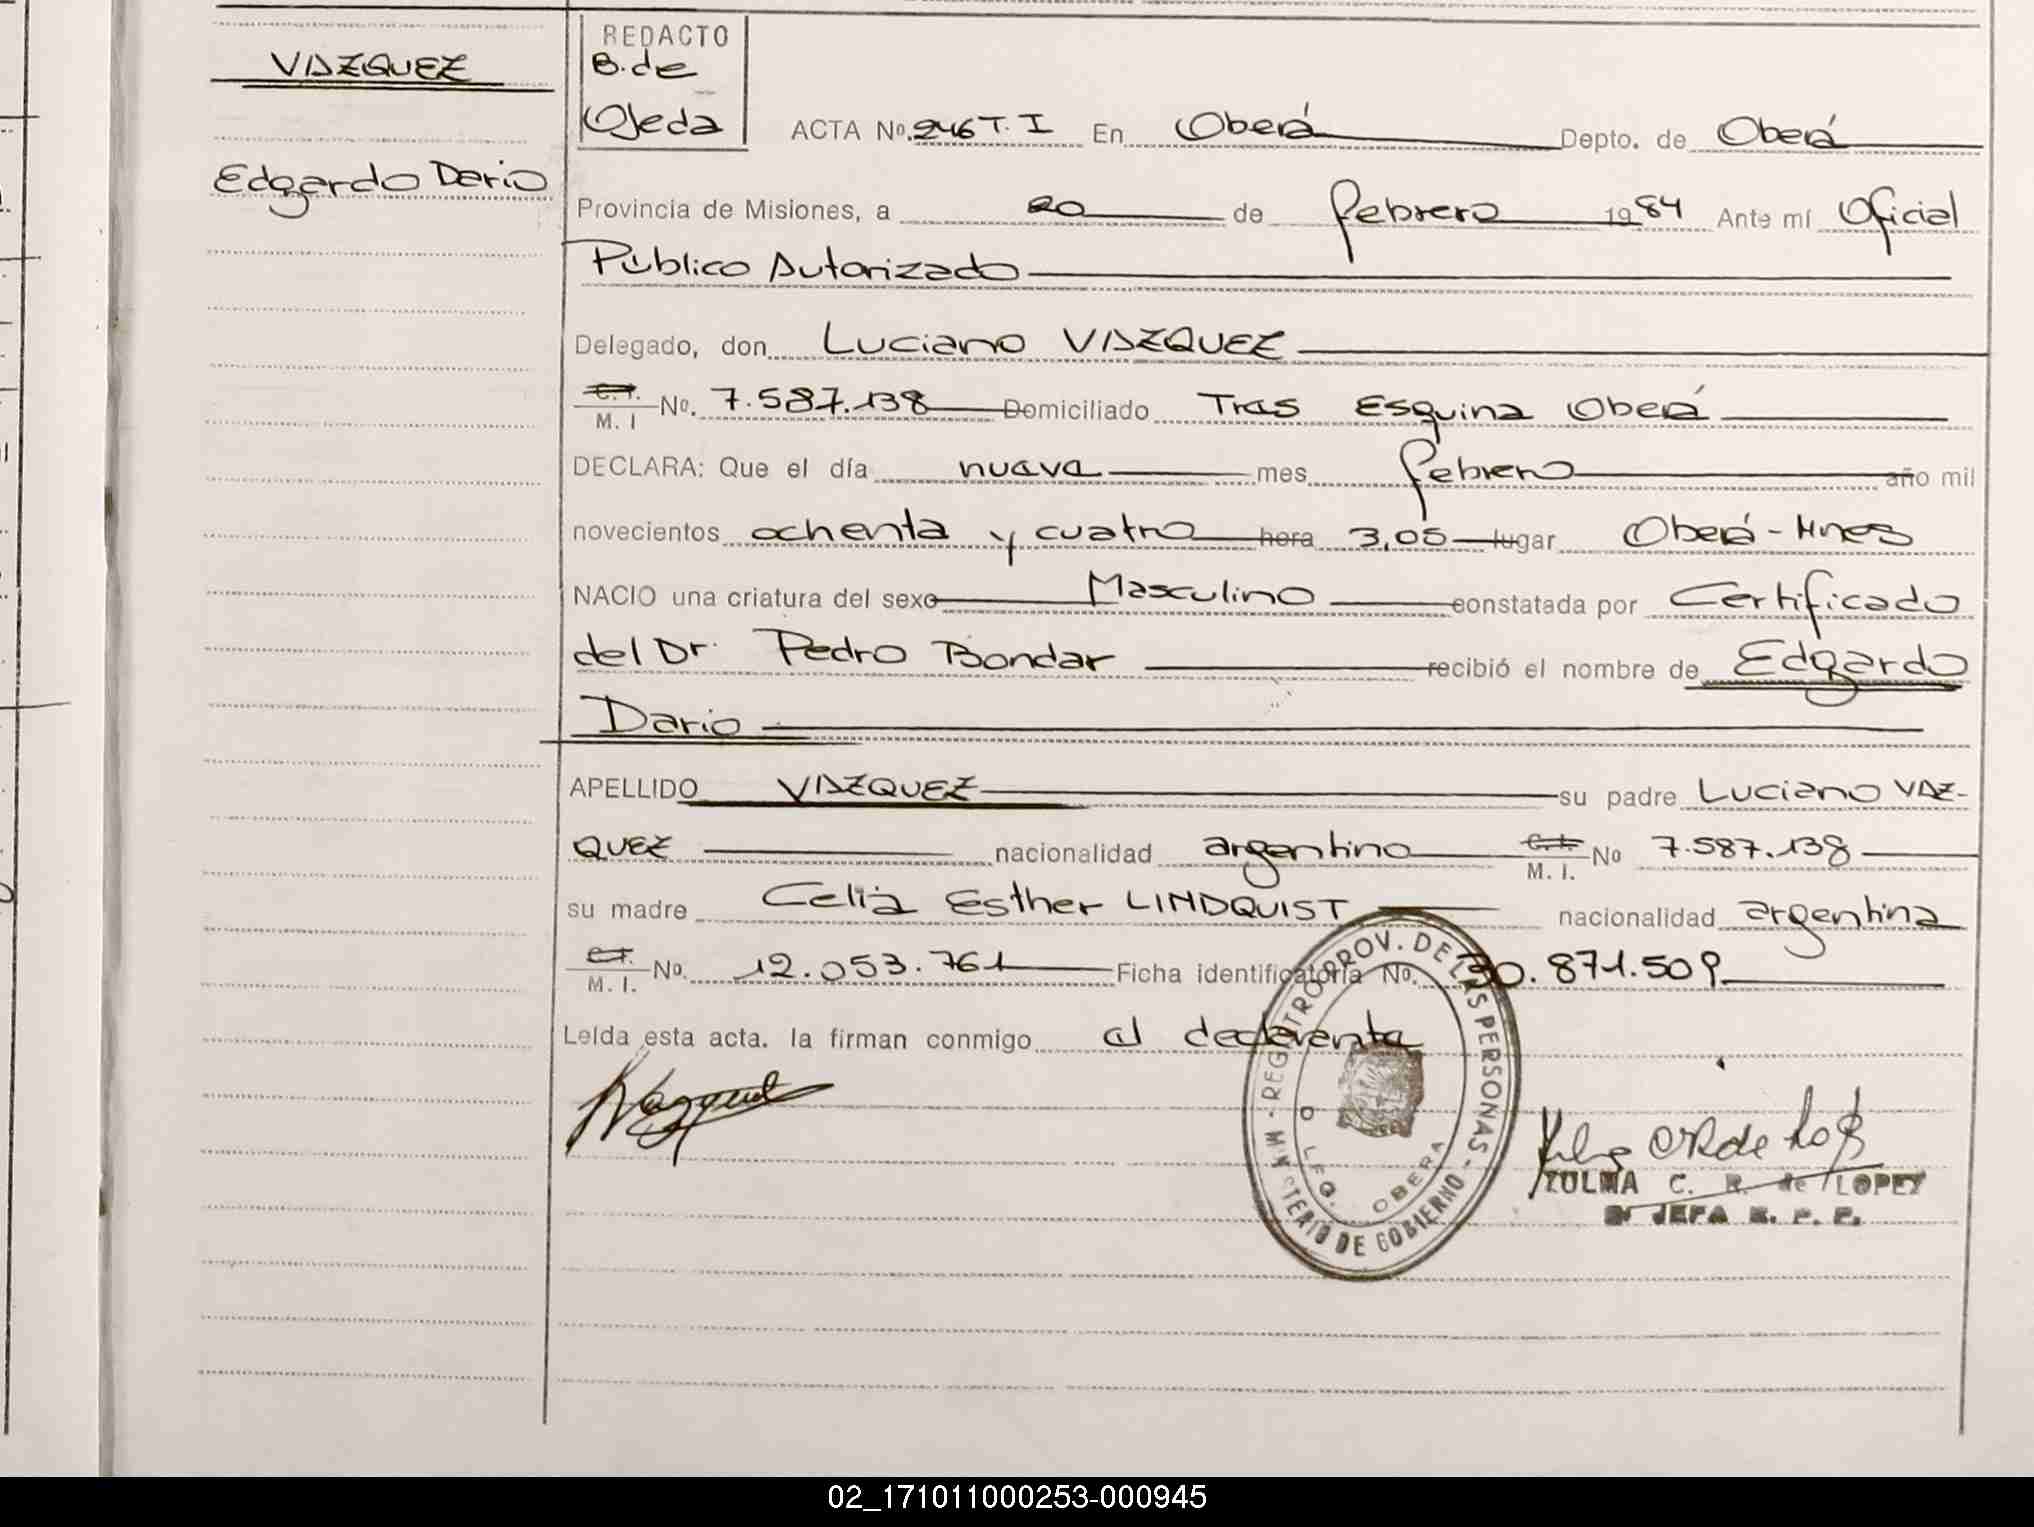 VAZQUEZ
Edgardo Dario
REDACTO
B. de
Ojeda
ACTA No. 246 T. I En Oberá Depto. de Oberá
Provincia de Misiones, a 20 de febrero 1984 Ante mí Oficial
Público Autorizado
Delegado, don Luciano VAZQUEZ
C.I. M. I No. 7.587.138 Domiciliado Tres Esquina Oberá
DECLARA: Que el día nueve mes febrero año mil
novecientos ochenta y cuatro hora 3,05 lugar Oberá - Mnes
NACIO una criatura del sexo Masculino constatada por Certificado
del Dr. Pedro Bondar recibió el nombre de Edgardo
Dario
APELLIDO VAZQUEZ su padre Luciano VAZ-
QUEZ nacionalidad argentino C.I. M. I. No 7.587.138
su madre Celia Esther LINDQUIST nacionalidad argentina
C.I. M. I. No. 12.053.761 Ficha identificatoria No. 30.871.509
Leída esta acta. la firman conmigo el declarente
Vazquez
REGISTRO PROV. DE LAS PERSONAS - MINISTERIO DE GOBIERNO -
OBERA
ZULMA C. R. de LOPEZ
JEFA R. P. P.
02_171011000253-000945